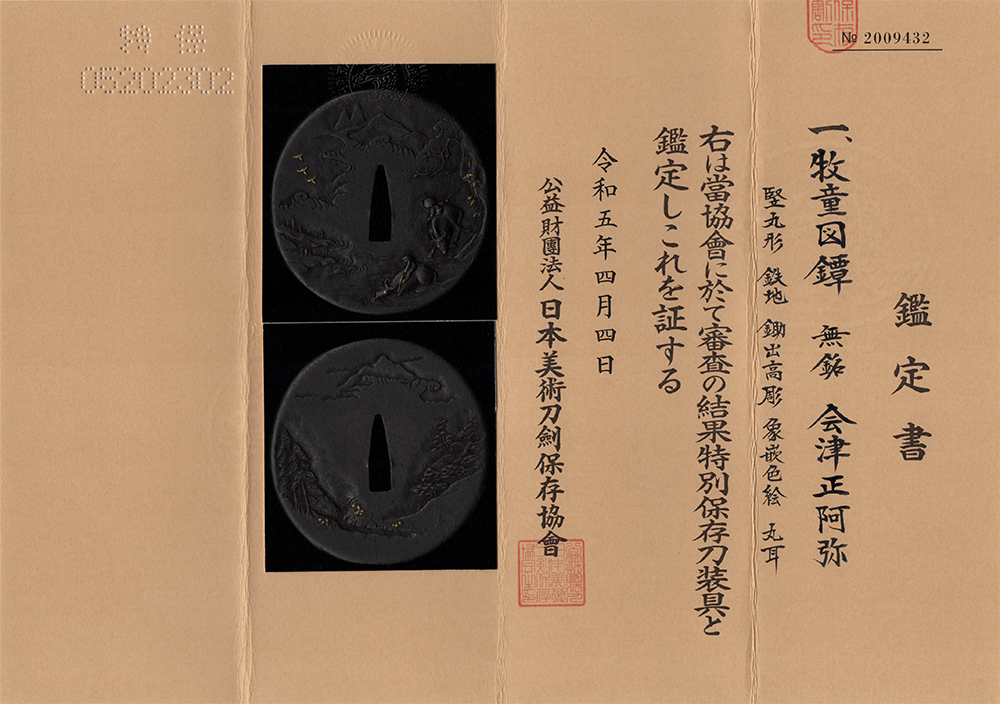 № 2009432
鑑定書
一、牧童図鐔 無銘 会津正阿弥
竪丸形 鉄地 鋤出高彫 象嵌色絵 丸耳
右は當協會に於て審査の結果特別保存刀装具と
鑑定しこれを証する
令和五年四月四日
公益財團法人 日本美術刀劍保存協會
特保
05202302